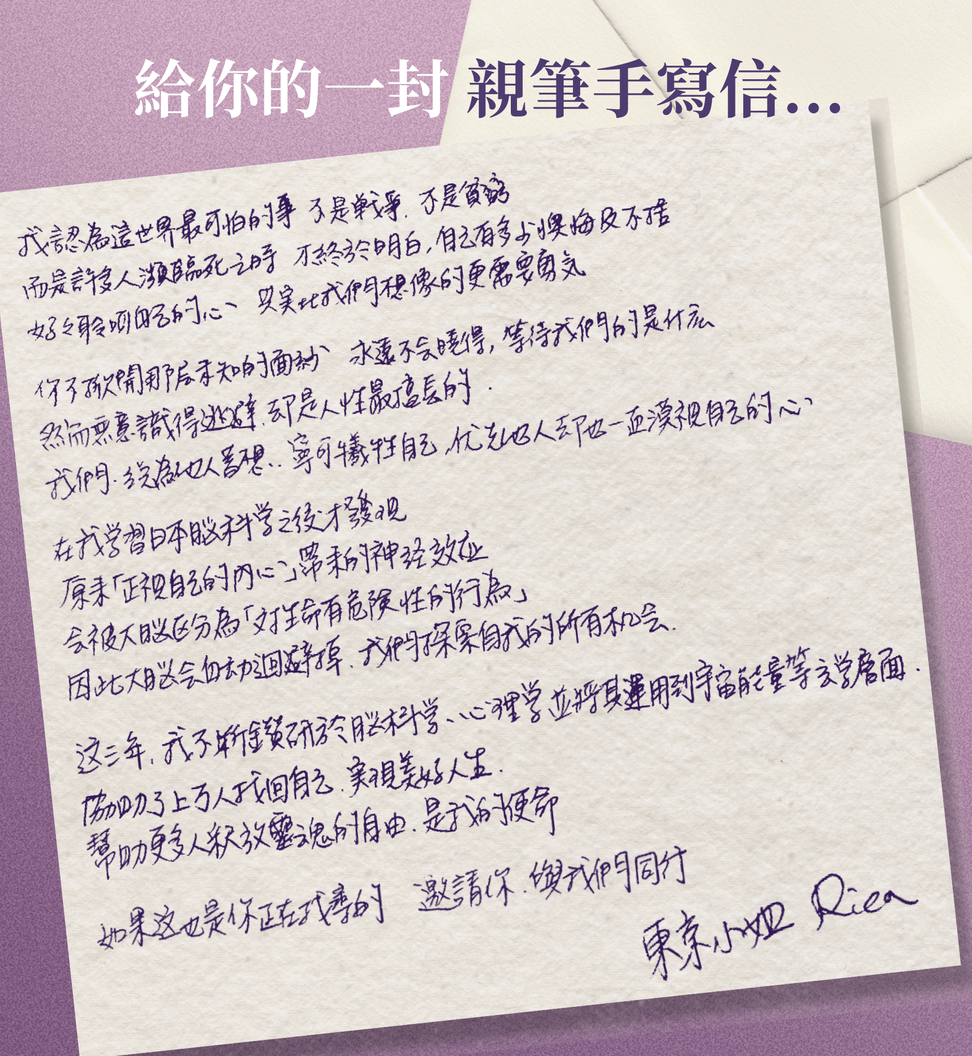 給你的一封 親筆手寫信...
我認為這世界最可怕的事 不是戦爭. 不是貧窮
而是許多人瀕臨死之時 不終於明白,自己有多少懊悔及不捨
好好聆聽自己的心 其実比我們想像的更需要勇気
你不掀開那层未知的面紗 永遠不会曉得, 等待我們的是什広
然而無意識得逃避. 却是人性最擅長的.
我們. 総為他人着想.. 寧可犧牲自己,优先他人却也一直漠視自己的心
在我学習日本脳科学之後才發現
原来「正視自己的内心」帶来的神经效应
会被大脳区分為「对生命有危険性的行為」
因此大脳会自动迴避掉. 我們探索自我的所有机会.
这三年, 我不断鑽研於脳科学、心理学並將其運用到宇宙能量等玄学層面.
協助了上万人找回自己. 実現美好人生.
幫助更多人釈放靈魂的自由. 是我的使命
如果这也是你正在找尋的 邀請你. 與我們同行
東京小姐 Rica